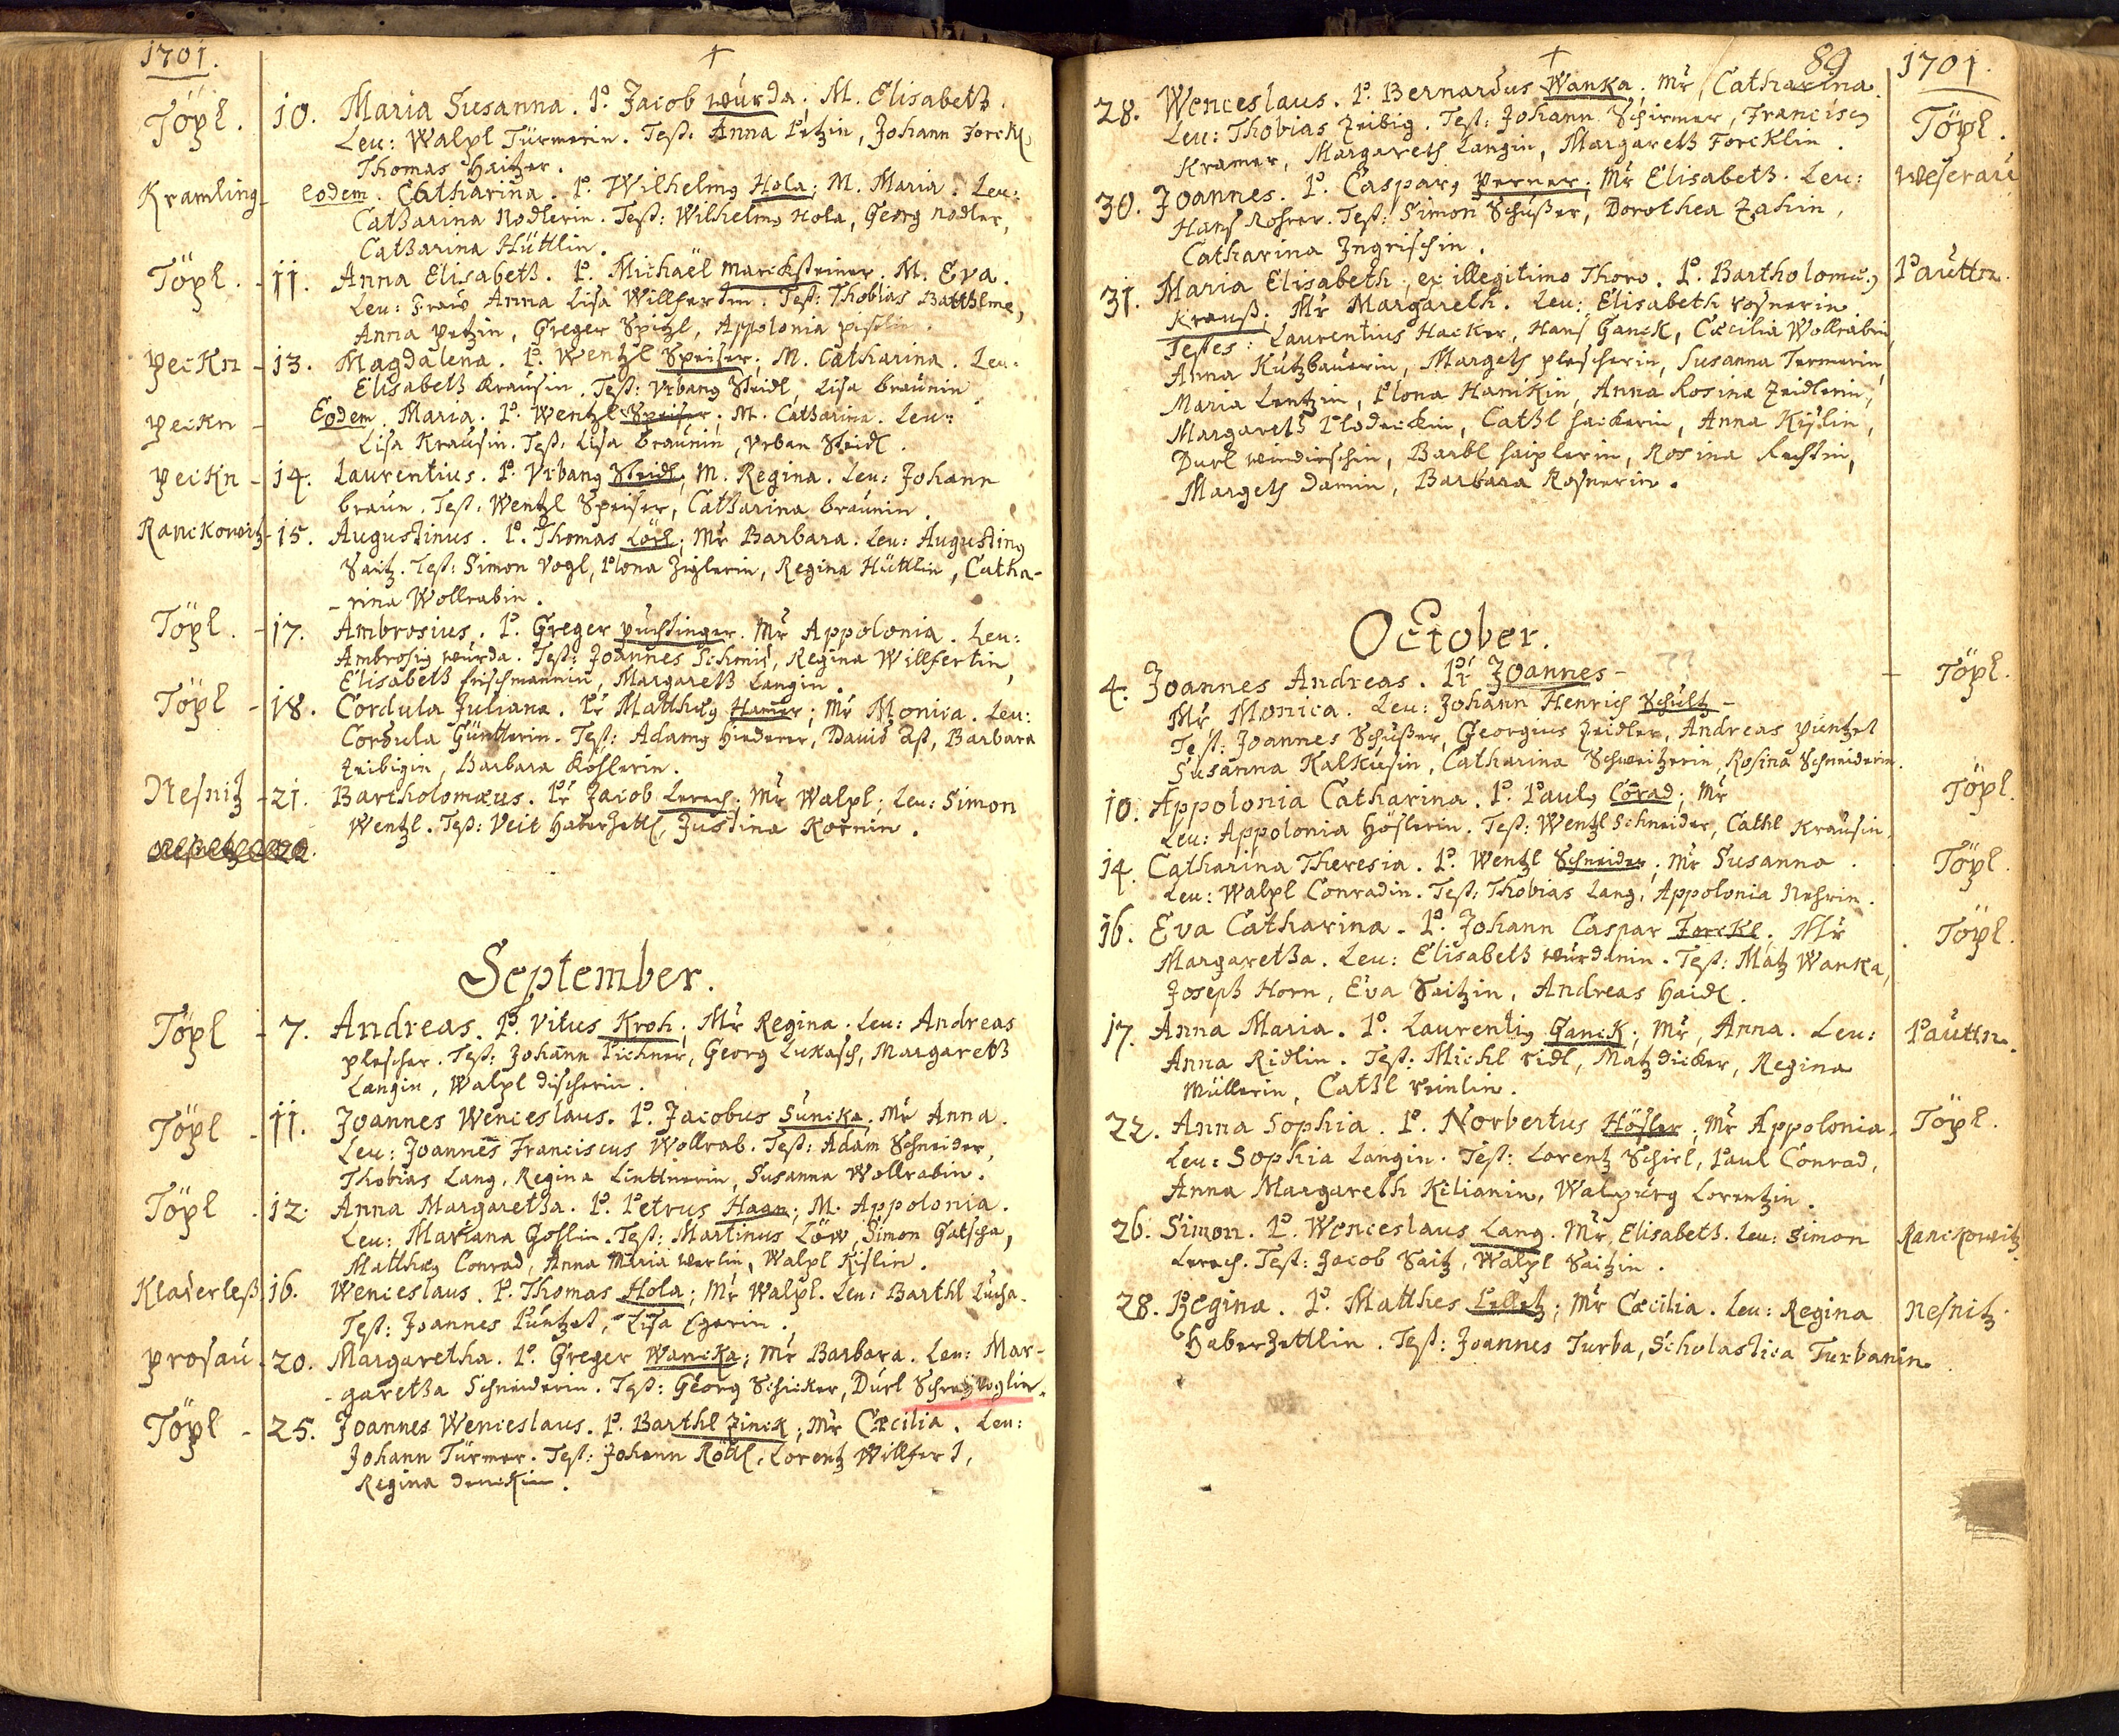 1701.
Töpl. 10. Maria Susanna. P. Jacob wurda; M. Elisabeth.
Leu: Walpl Türmerin. Test: Anna Petzin, Johann Forckl,
Thomas Haitzer.
Kramling eodem. Catharina. P. Wilhelmg Hola; M. Maria. Leu:
Catharina Nodlerin. Test: Wilhelmg Hola, Georg Nodler,
Catharina Hüttlin.
Töpl. 11. Anna Elisabeth. P. Michaël Marcksteiner. M. Eva.
Leu: Fraw Anna Lisa Willfertin. Test: Thobias Batthlme,
Anna petzin, Greger Spitzl, Appolonia pischin.
peckn - 13. Magdalena. P. Wentzl Speiser; M. Catharina. Leu:
Elisabeth Krausin. Test: Vrbang Steidl, Lisa braunin.
peckn - Eodem. Maria. P. Wentzl Speiser; M. Catharina. Leu:
Lisa Krausin. Test: Lisa braunin, Vrban Steidl.
peckn - 14. Laurentius. P. Vrbang Steidl; M. Regina. Leu: Johann
braun. Test: Wentzl Speiser, Catharina braunin.
Ranckowitz - 15. Augustinus. P. Thomas Löil; Mr Barbara. Leu: Augusting
Saitz. Test: Simon Vogl, Plona Ziglerin, Regina Hüttlin, Catha-
-rina Wollrabin.
Töpl. - 17. Ambrosius. P. Greger puchtinger. Mr Appolonia. Leu:
Ambrosig wurda. Test: Joannes Schmid, Regina Willfertin,
Elisabeth frischmannin, Margareth Langin.
Töpl - 18. Cordula Juliana. Pr Matthig Hamer; Mr Monica. Leu:
Cordula Güntterin. Test: Adamg Hiederer, David Ast, Barbara
Zeibigin, Barbara Köhlerin.
Nesnitz - 21. Bartholomæus. Pr Jacob Lerech; Mr Walpl; Leu: Simon
Wentzl. Test: Veit Haberzettl, Justina Kornin.
September.
Töpl - 7. Andreas. P. Vitus Kroh; Mr Regina. Leu: Andreas
plescher. Test: Johann Pichner, Georg Lukasch, Margareth
Langin, Walpl discherin.
Töpl - 11. Joannes Wenceslaus. P. Jacobus Suncka. Mr Anna.
Leu: Joannes Franciscus Wollrab. Test: Adam Schneider,
Thobias Lang, Regina Linttnerin, Susanna Wollrabin.
Töpl. 12. Anna Margaretha. P. Petrus Haan; M. Appolonia.
Leu: Mariana Goslin. Test: Martinus Löw, Simon Gatscha,
Matthig Conrad, Anna Maria werlin, Walpl Kislin.
Kladerless 16. Wenceslaus. P. Thomas Hola; Mr Walpl. Leu: Barthl Lucha.
Test: Joannes Püntzel, Lisa Egerin.
prosau - 20. Margaretha. P. Greger Wancka; Mr Barbara. Leu: Mar-
-garetha Schneiderin. Test: Georg Schicker, Durl Schretzvoglin.
Töpl - 25. Joannes Wenceslaus. P. Barthl Zinck; Mr Cæcilia. Leu:
Johann Türmer. Test: Johann Rödl, Lorentz Willfert,
Regina denckin.
89 1701.
28. Wenceslaus. P. Bernardus Wanka; Mr, Catharina. Töpl.
Leu: Thobias Zeibig. Test: Johann Schirmer, Franciscg
Kramer, Margareth Langin, Margareth Forcklin.
30. Joannes. P. Casparg perner; Mr Elisabeth. Leu: weserau
Hans Rohrer. Test: Simon Schußer, Dorothea Zahin,
Catharina Ingrischin.
31. Maria Elisabeth, ex illegitimo Thoro. P. Bartholomeg Pauttn.
Krauß; Mr Margareth. Leu: Elisabeth rosnerin
Testes: Laurentius Hacker, Hans Ganck, Cæcilia Wollrabin,
Anna Kutzbaurin, Margeth plescherin, Susanna Termerin,
Maria Lentzin, Plona Hanikin, Anna Rosina Zeidlerin,
Margareth Plodeckin, Cathl hackerin, Anna Kislin,
Durl windirschin, Barbl haiplerin, Rosina Rechtin,
Margeth Damin, Barbara Rosnerin.
October.
4. Joannes Andreas. Pr Joannes - Töpl.
Mr Monica. Leu: Johann Henrich Schultz -
Test: Joannes Schußer, Georgius Zeidler, Andreas puntzel
Susanna Kalkusin, Catharina Schweitzerin, Rosina Schneiderin.
10. Appolonia Catharina. P. Paulg Corad; Mr Töpl.
Leu: Appolonia Höslerin. Test: Wentzl Schneider, Cathl Krausin.
14. Catharina Theresia. P. Wentzl Schneider. Mr Susanna. Töpl.
Leu: Walpl Conradin. Test: Thobias Lang, Appolonia Nehrin.
16. Eva Catharina. P. Johann Caspar Forckl. Mr Töpl.
Margaretha. Leu: Elisabeth wurdanin. Test: Matz Wanka,
Joseph Horn, Eva Saitzin, Andreas Haidl.
17. Anna Maria. P. Laurentig Ganck; Mr, Anna. Leu: Pauttn.
Anna Ridlin. Test: Michl ridl, Matz dicker, Regina
Müllerin, Cathl reinlin.
22. Anna Sophia. P. Norbertus Hösler; Mr Appolonia. Töpl.
Leu: Sophia Langin. Test: Lorentz Schirl, Paul Conrad,
Anna Margareth Kilianin, Walpurg Lorentzin.
26. Simon. P. Wenceslaus Lang. Mr, Elisabeth. Leu: Simon Ranckowitz.
Lerech. Test: Jacob Saitz, Walpl Saitzin.
28. Regina. P. Matthes Pelletz; Mr Cæcilia. Leu: Regina Nesnitz.
Haberzettlin. Test: Joannes Turba, Scholastica Turbanin.